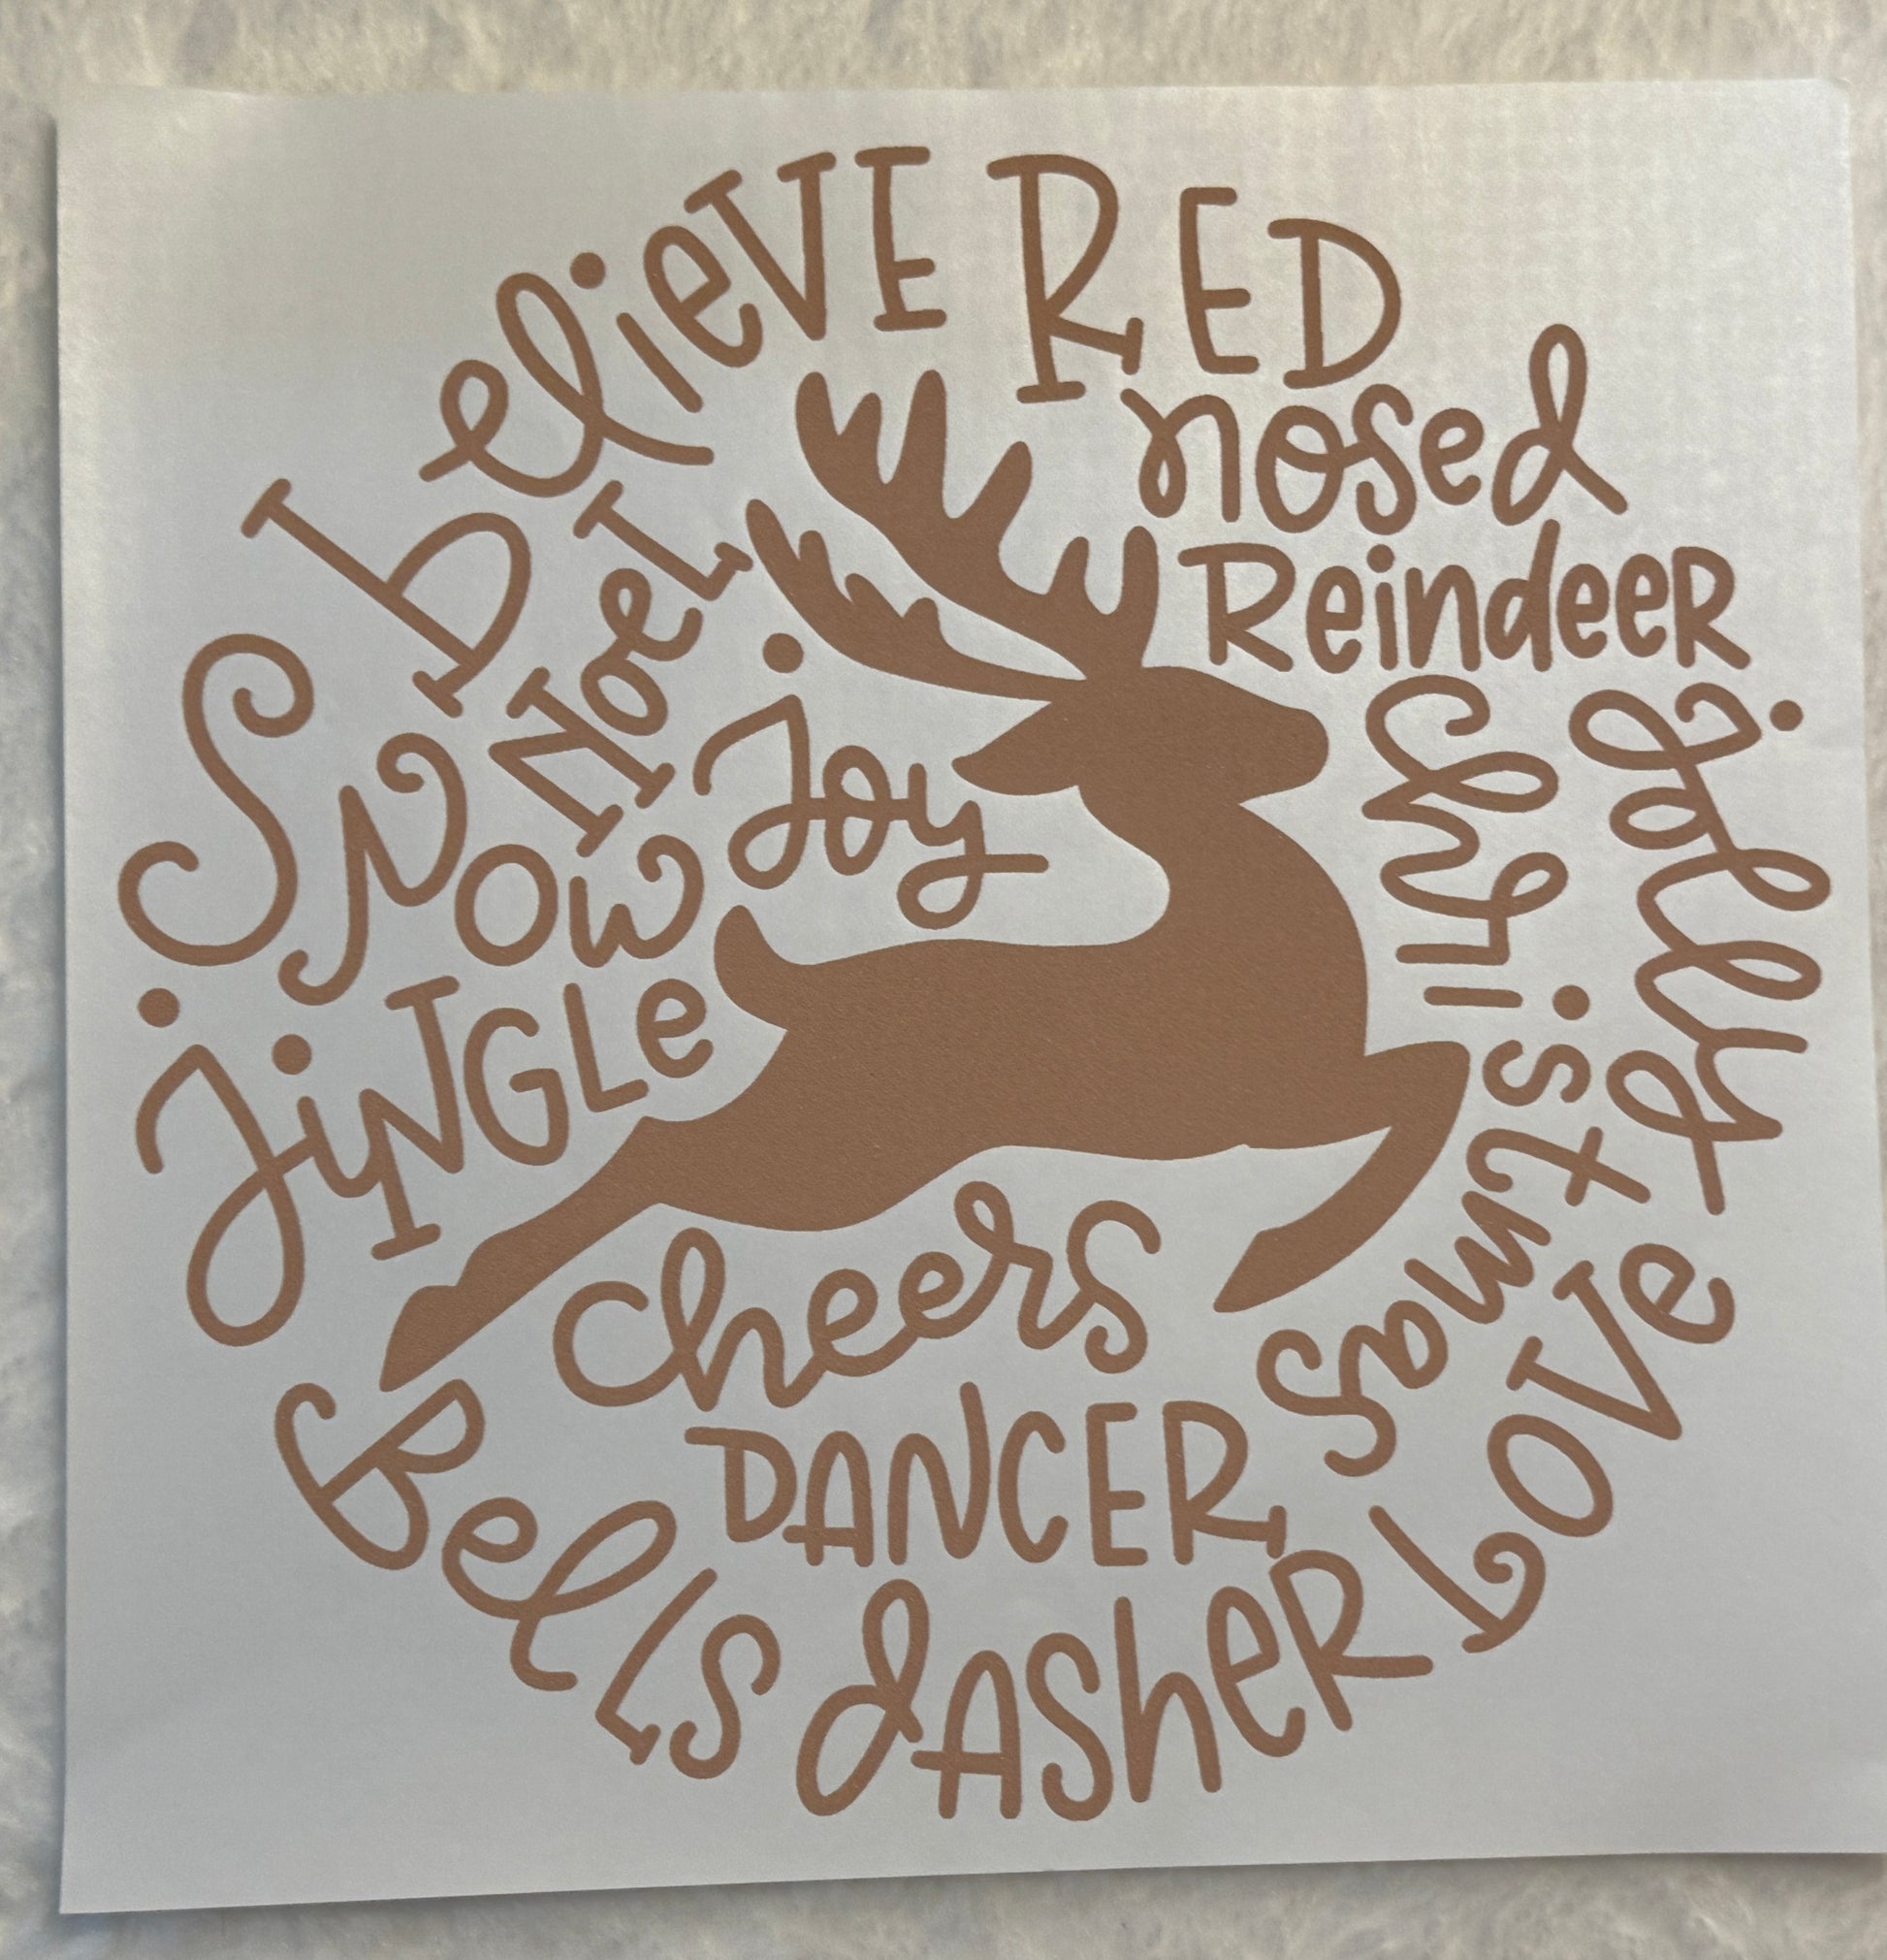 believe
RED
nosed
Reindeer
Noel
Joy
Snow
Jingle
Christmas
jolly
cheers
Love
DANCER
Bells
dAsheR